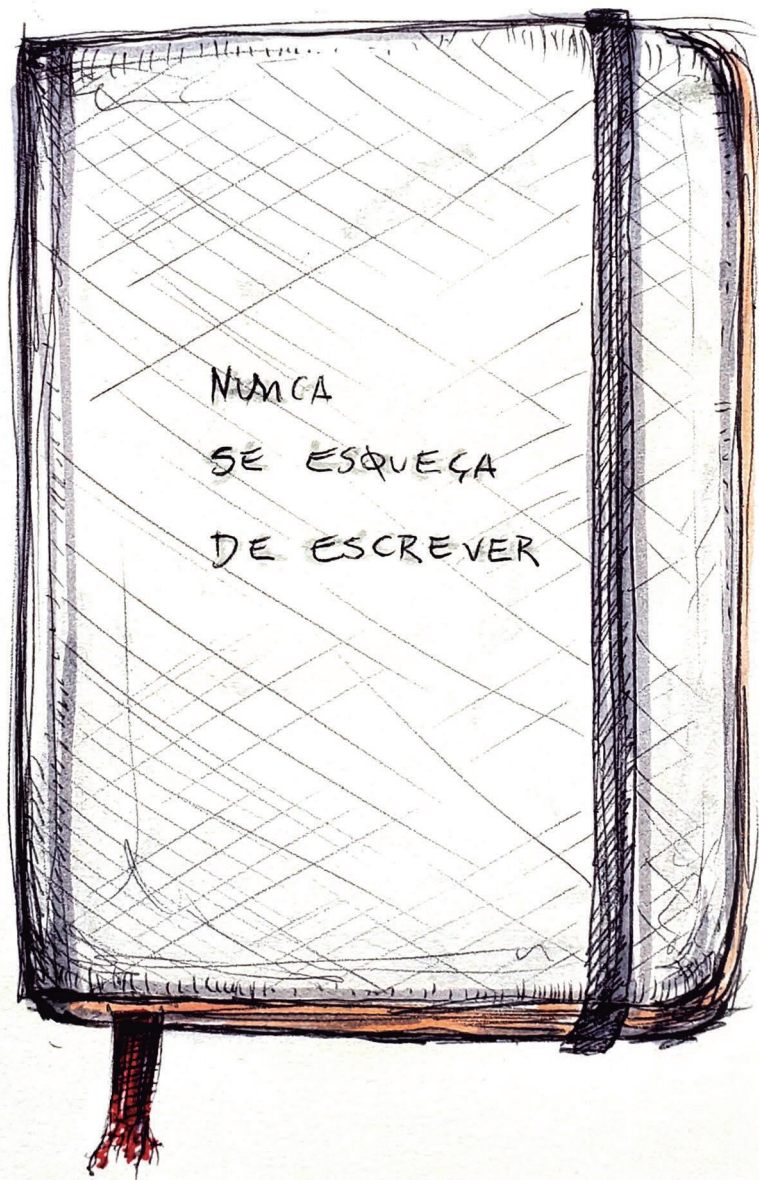 NUNCA
SE ESQUEÇA
DE ESCREVER